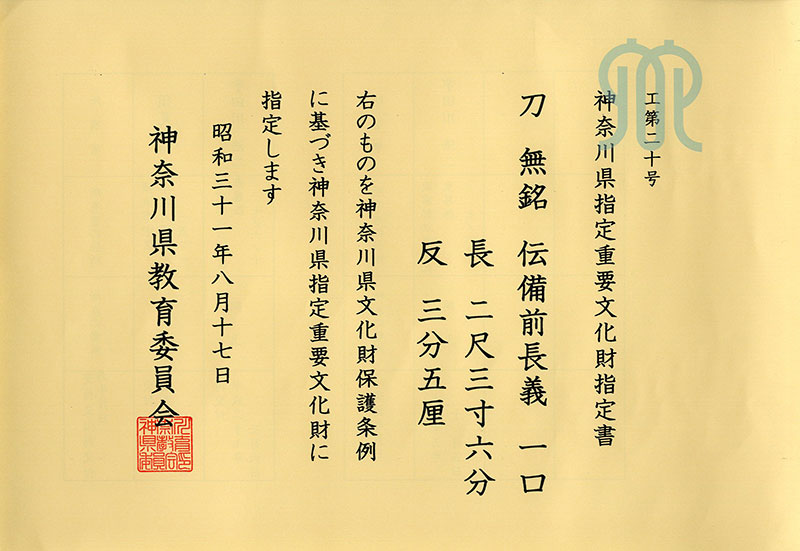 工第二十号
神奈川県指定重要文化財指定書
刀 無銘 伝備前長義 一口
長 二尺三寸六分
反 三分五厘
右のものを神奈川県文化財保護条例
に基づき神奈川県指定重要文化財に
指定します
昭和三十一年八月十七日
神奈川県教育委員会